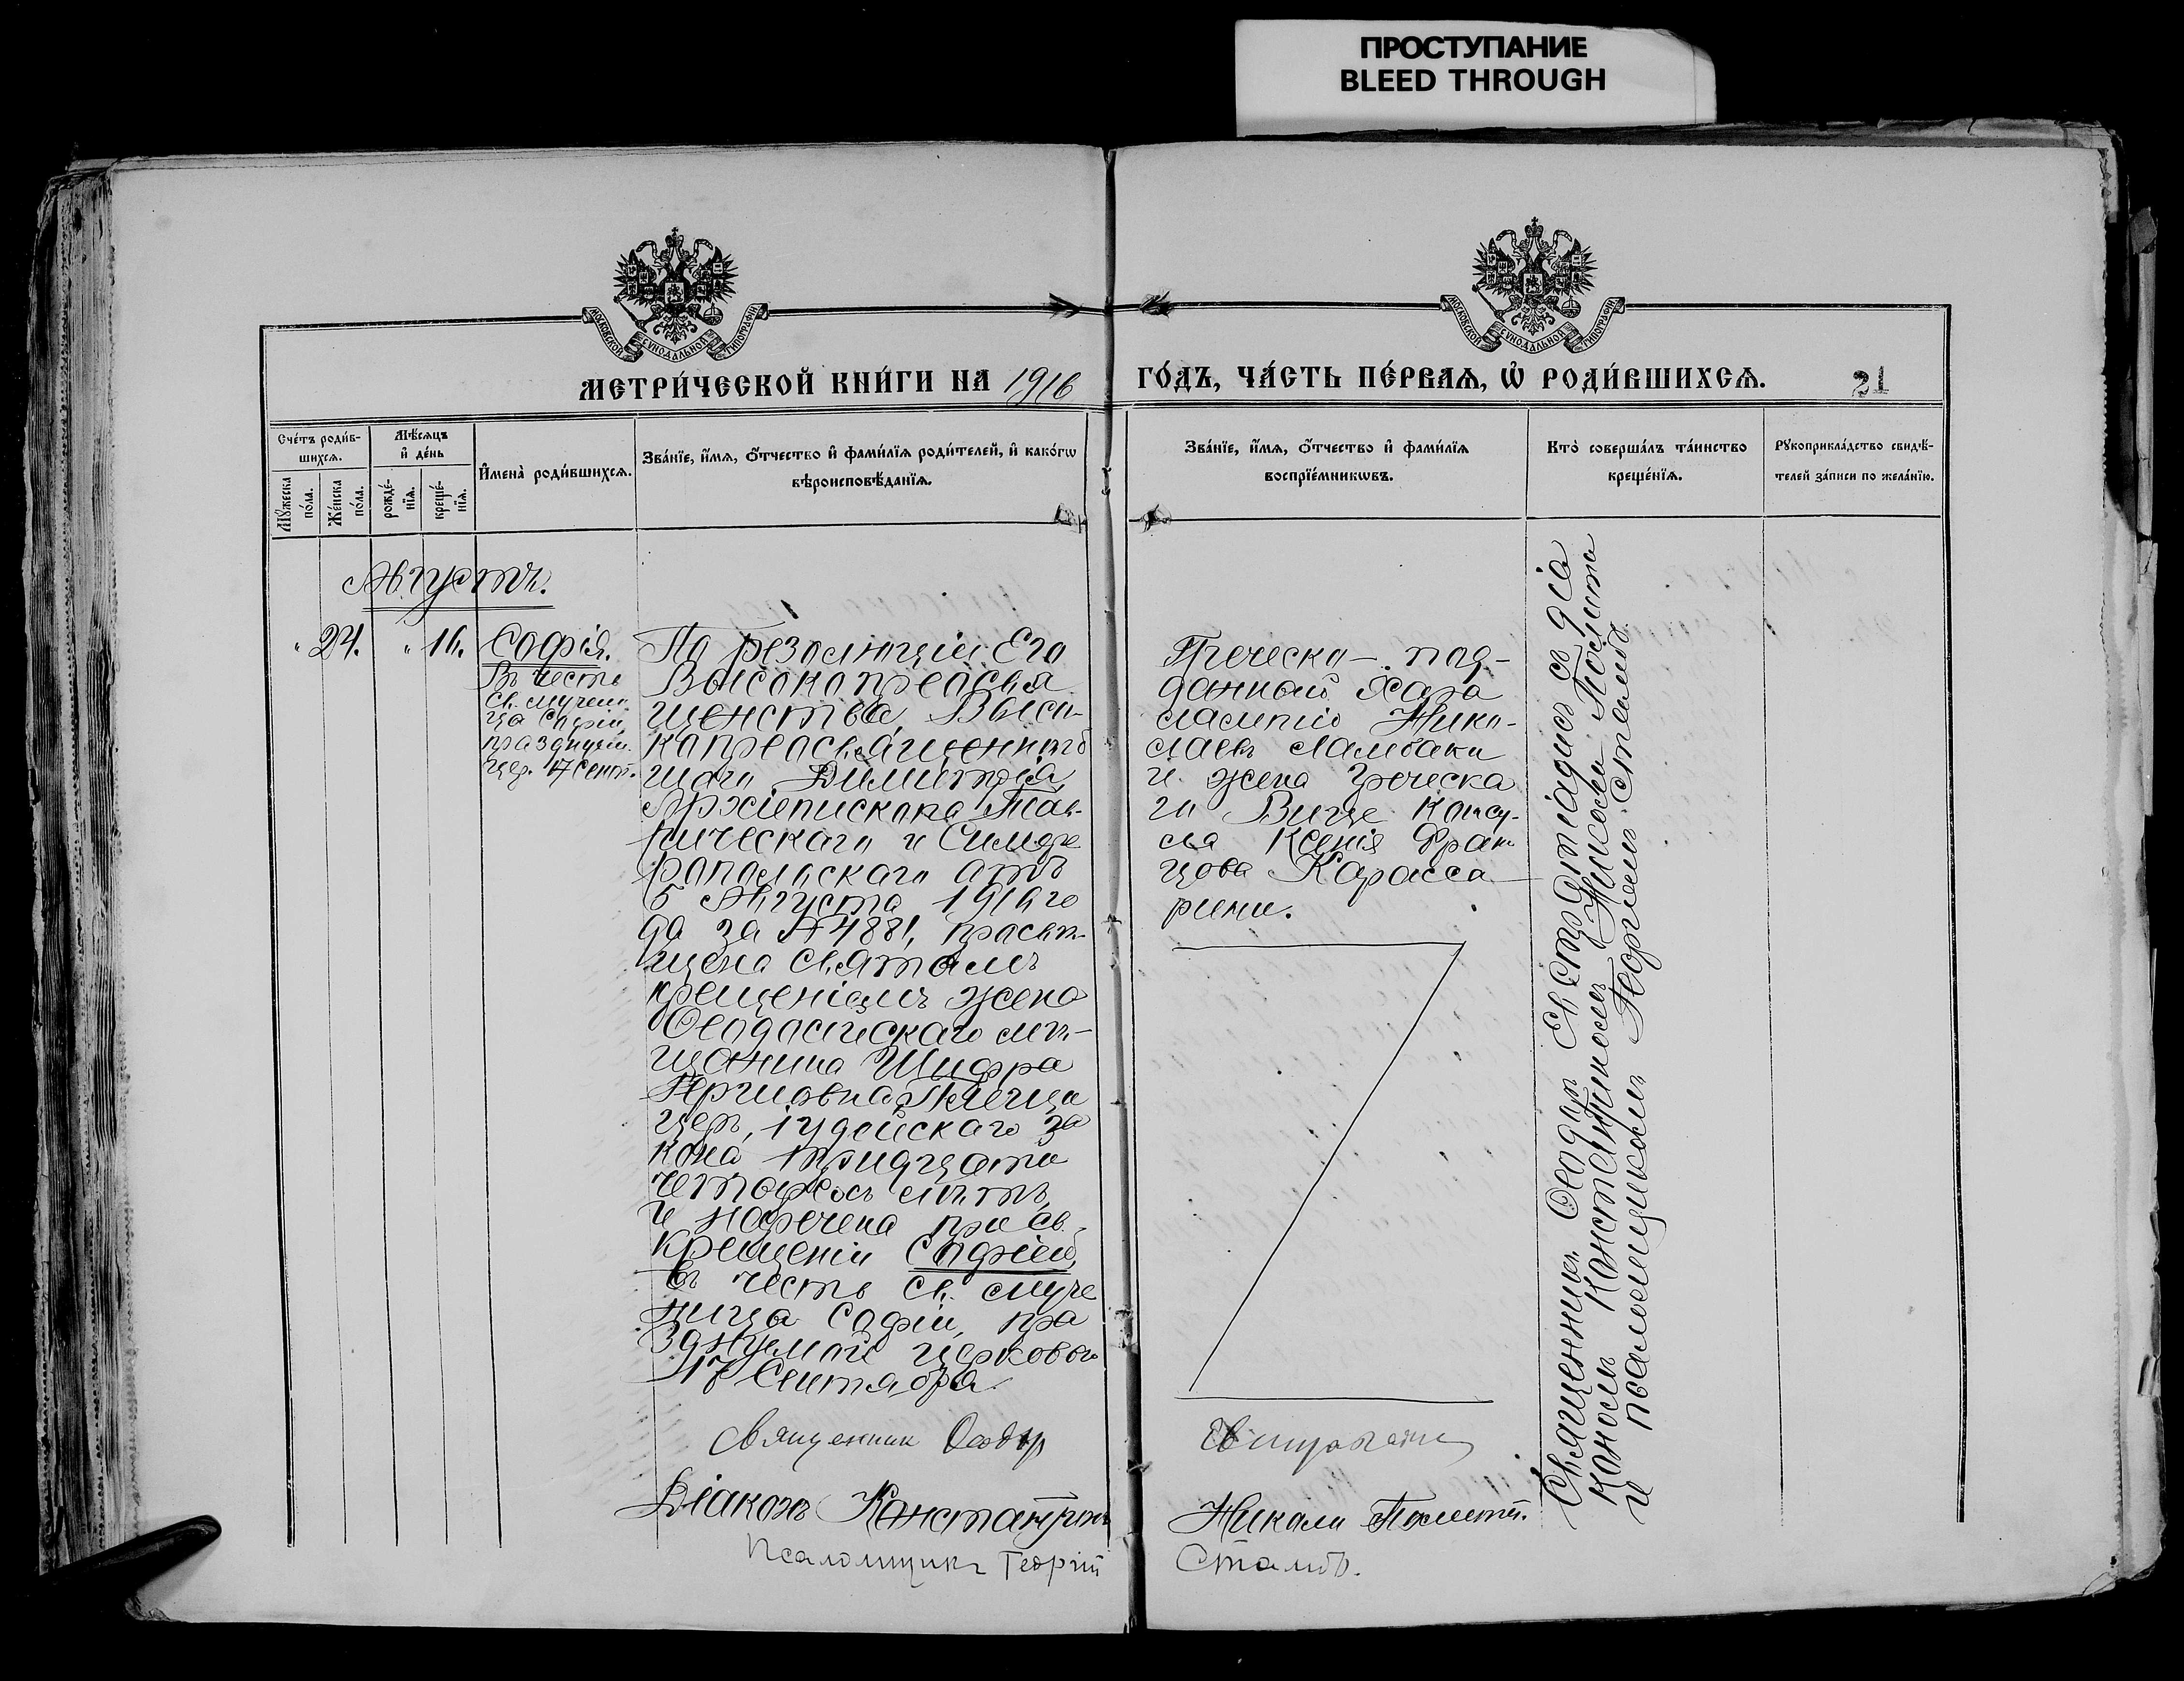 ПРОСТУПАНИЕ
BLEED THROUGH
МОСКОВСКОЙ СУНОДАЛЬНОЙ ТИПОГРАФІИ
МОСКОВСКОЙ СУНОДАЛЬНОЙ ТИПОГРАФІИ
МЕТРИ́ЧЕСКОЙ КНИ́ГИ НА 1916 ГО́ДЪ, ЧА́СТЬ ПЕ́РВАѦ, Ѡ҆ РОДИ́ВШИХСѦ. 21
Сче́тъ роди́в-
шихсѧ.
Мѣ́сѧцъ
и҆ де́нь
Мꙋ́жеска
по́ла.
Же́нска
по́ла.
рожде́-
нїѧ.
креще́-
нїѧ.
И҆мена̀ роди́вшихсѧ.
Зва́нїе, и҆́мѧ, ѻ҆́тчество и҆ фами́лїѧ роди́телей, и҆ како́гѡ
вѣроисповѣ́данїѧ.
Зва́нїе, и҆́мѧ, ѻ҆́тчество и҆ фами́лїѧ
воспрїе́мникѡвъ.
Кто̀ соверша́лъ та́инство
креще́нїѧ.
Рꙋкоприкла́дство свидѣ́-
телей за́писи по жела́нїю.
Августъ.
" 24. " 16. Софія.
Въ честь
св. мучени-
ца Софіи,
празднуем.
цер. 17 Сент.
По резолюціи Его
Высокопреосвя
щенства, Высо-
копреосвященнѣй
шаго Димитрія,
Архіепископа Тав-
рическаго и Симфе
ропольскаго отъ
5 Августа 1916 го
да за № 4881, просвѣ-
щена святымъ
крещеніемъ жена
Ѳеодосійскаго мѣ-
щанина Шифра
цер, іудейскаго за
кона тридцати
четырехъ лѣтъ,
и наречена при св.
крещеніи Софіей,
въ честь св. муче
ница Софіи, пра
зднуемой церковью
17 Сентября.
Священник Ѳеодор
Діаконъ Константинъ
Псаломщикъ Георгій
Греческо-под-
данный Хара
лампій Нико-
лаевъ Ламбаки
и жена Греческа
го Вице Консу-
ла Ксенія Фран
цова Карасса
рини.
Евстратіадис
Николи Полити.
Стамб.
Священник Ѳеодор Евстратіадисъ съ діа
кономъ Константиномъ Николи Полити
и псаломщикомъ Георгіемъ Стамб.